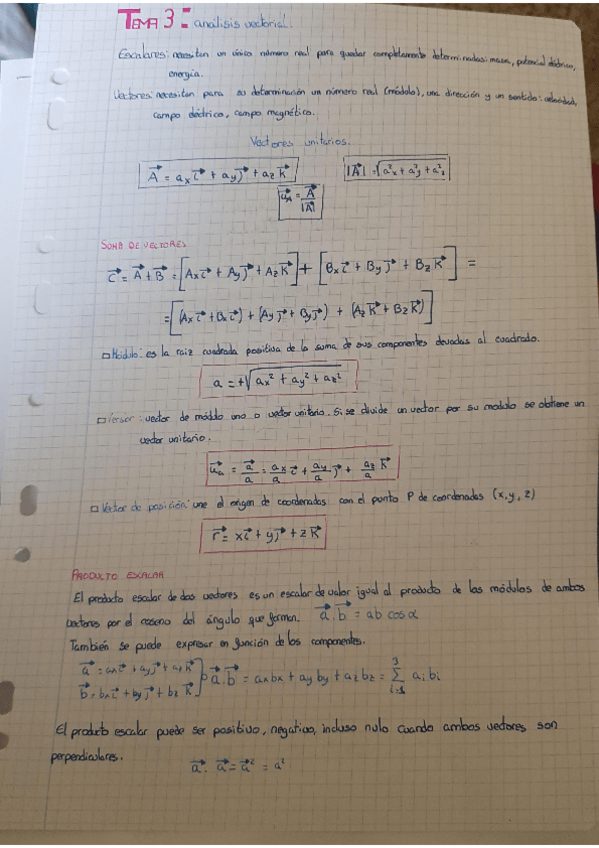 TEMA 3: análisis vectorial.
Escalares: necesitan un único número real para quedar completamente determinadas: masa, potencial eléctrico,
energía.
Vectores: necesitan para su determinación un número real (módulo), una dirección y un sentido: velocidad,
campo eléctrico, campo magnético.
Vectores unitarios.
A⃗ = aₓ i⃗ + a_y j⃗ + a_z K⃗    |A⃗| = √(a²ₓ + a²_y + a²_z)
u⃗_A = A⃗/|A⃗|
SUMA DE VECTORES
C⃗ = A⃗ + B⃗ = [Aₓ i⃗ + A_y j⃗ + A_z K⃗] + [Bₓ i⃗ + B_y j⃗ + B_z K⃗] =
= [(Aₓ i⃗ + Bₓ i⃗) + (A_y j⃗ + B_y j⃗) + (A_z K⃗ + B_z K⃗)]
□ Módulo: es la raiz cuadrada positiva de la suma de sus componentes elevadas al cuadrado.
a = +√(aₓ² + a_y² + a_z²)
□ Versor: vector de módulo uno o vector unitario. Si se divide un vector por su modulo se obtiene un
vector unitario.
u⃗_a = a⃗/a = aₓ/a i⃗ + a_y/a j⃗ + a_z/a K⃗
□ Vector de posición: une el origen de coordenadas con el punto P de coordenadas (x, y, z)
r⃗ = x i⃗ + y j⃗ + z K⃗
PRODUCTO ESCALAR
El producto escalar de dos vectores es un escalar de valor igual al producto de los módulos de ambos
vectores por el coseno del ángulo que forman. a⃗ · b⃗ = ab cos α
También se puede expresar en función de los componentes.
a⃗ = aₓ i⃗ + a_y j⃗ + a_z K⃗
b⃗ = bₓ i⃗ + b_y j⃗ + b_z K⃗ } a⃗ · b⃗ = aₓbₓ + a_y b_y + a_z b_z = Σ³ᵢ₌₁ aᵢ bᵢ
El producto escalar puede ser positivo, negativo, incluso nulo cuando ambos vectores son
perpendiculares.
a⃗ · a⃗ = a⃗² = a²